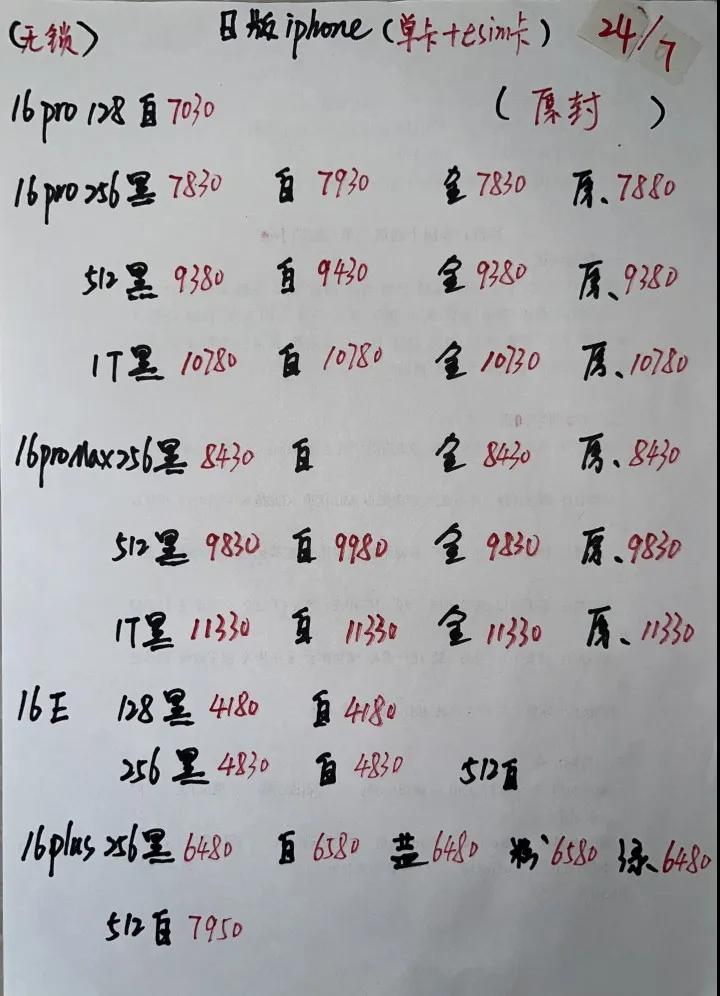 (无锁) 日版iphone(单卡+esim卡) 24/7
16pro 128白7030 (原封)
16pro 256黑7830 白7930 金7830 原、7880
512黑9380 白9430 金9380 原、9380
1T黑10780 白10780 金10730 原、10780
16proMax256黑8430 白 金8430 原、8430
512黑9830 白9980 金9830 原、9830
1T黑11330 白11330 金11330 原、11330
16E 128黑4180 白4180
256黑4830 白4830 512白
16plus 256黑6480 白6580 蓝6480 粉6580 绿6480
512白7950